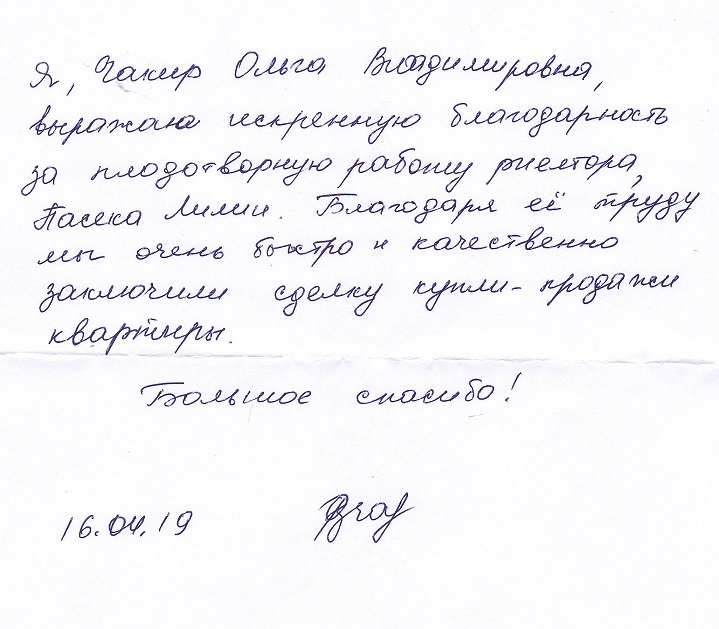 Я, Чакир Ольга Владимировна,
выражаю искренную благодарность
за плодотворную работу риелтора,
Пасека Лилии. Благодаря её труду
мы очень быстро и качественно
заключили сделку купли-продажи
квартиры.
Большое спасибо!
16.04.19